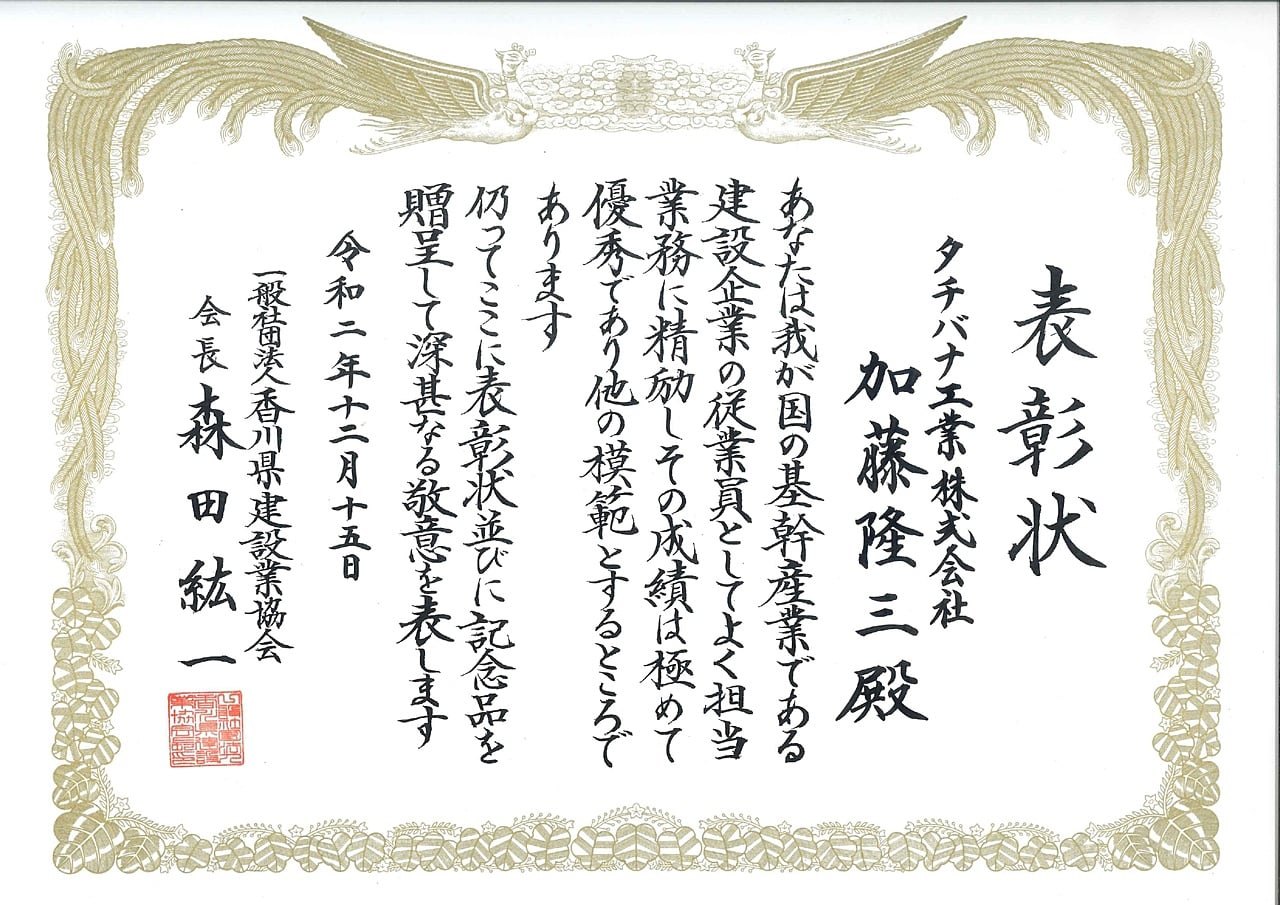 表彰状
タチバナ工業株式会社
加藤隆三殿
あなたは我が国の基幹産業である
建設企業の従業員としてよく担当
業務に精励しその成績は極めて
優秀であり他の模範とするところで
あります
仍ってここに表彰状並びに記念品を
贈呈して深甚なる敬意を表します
令和二年十二月十五日
一般社団法人香川県建設業協会
会長 森田紘一